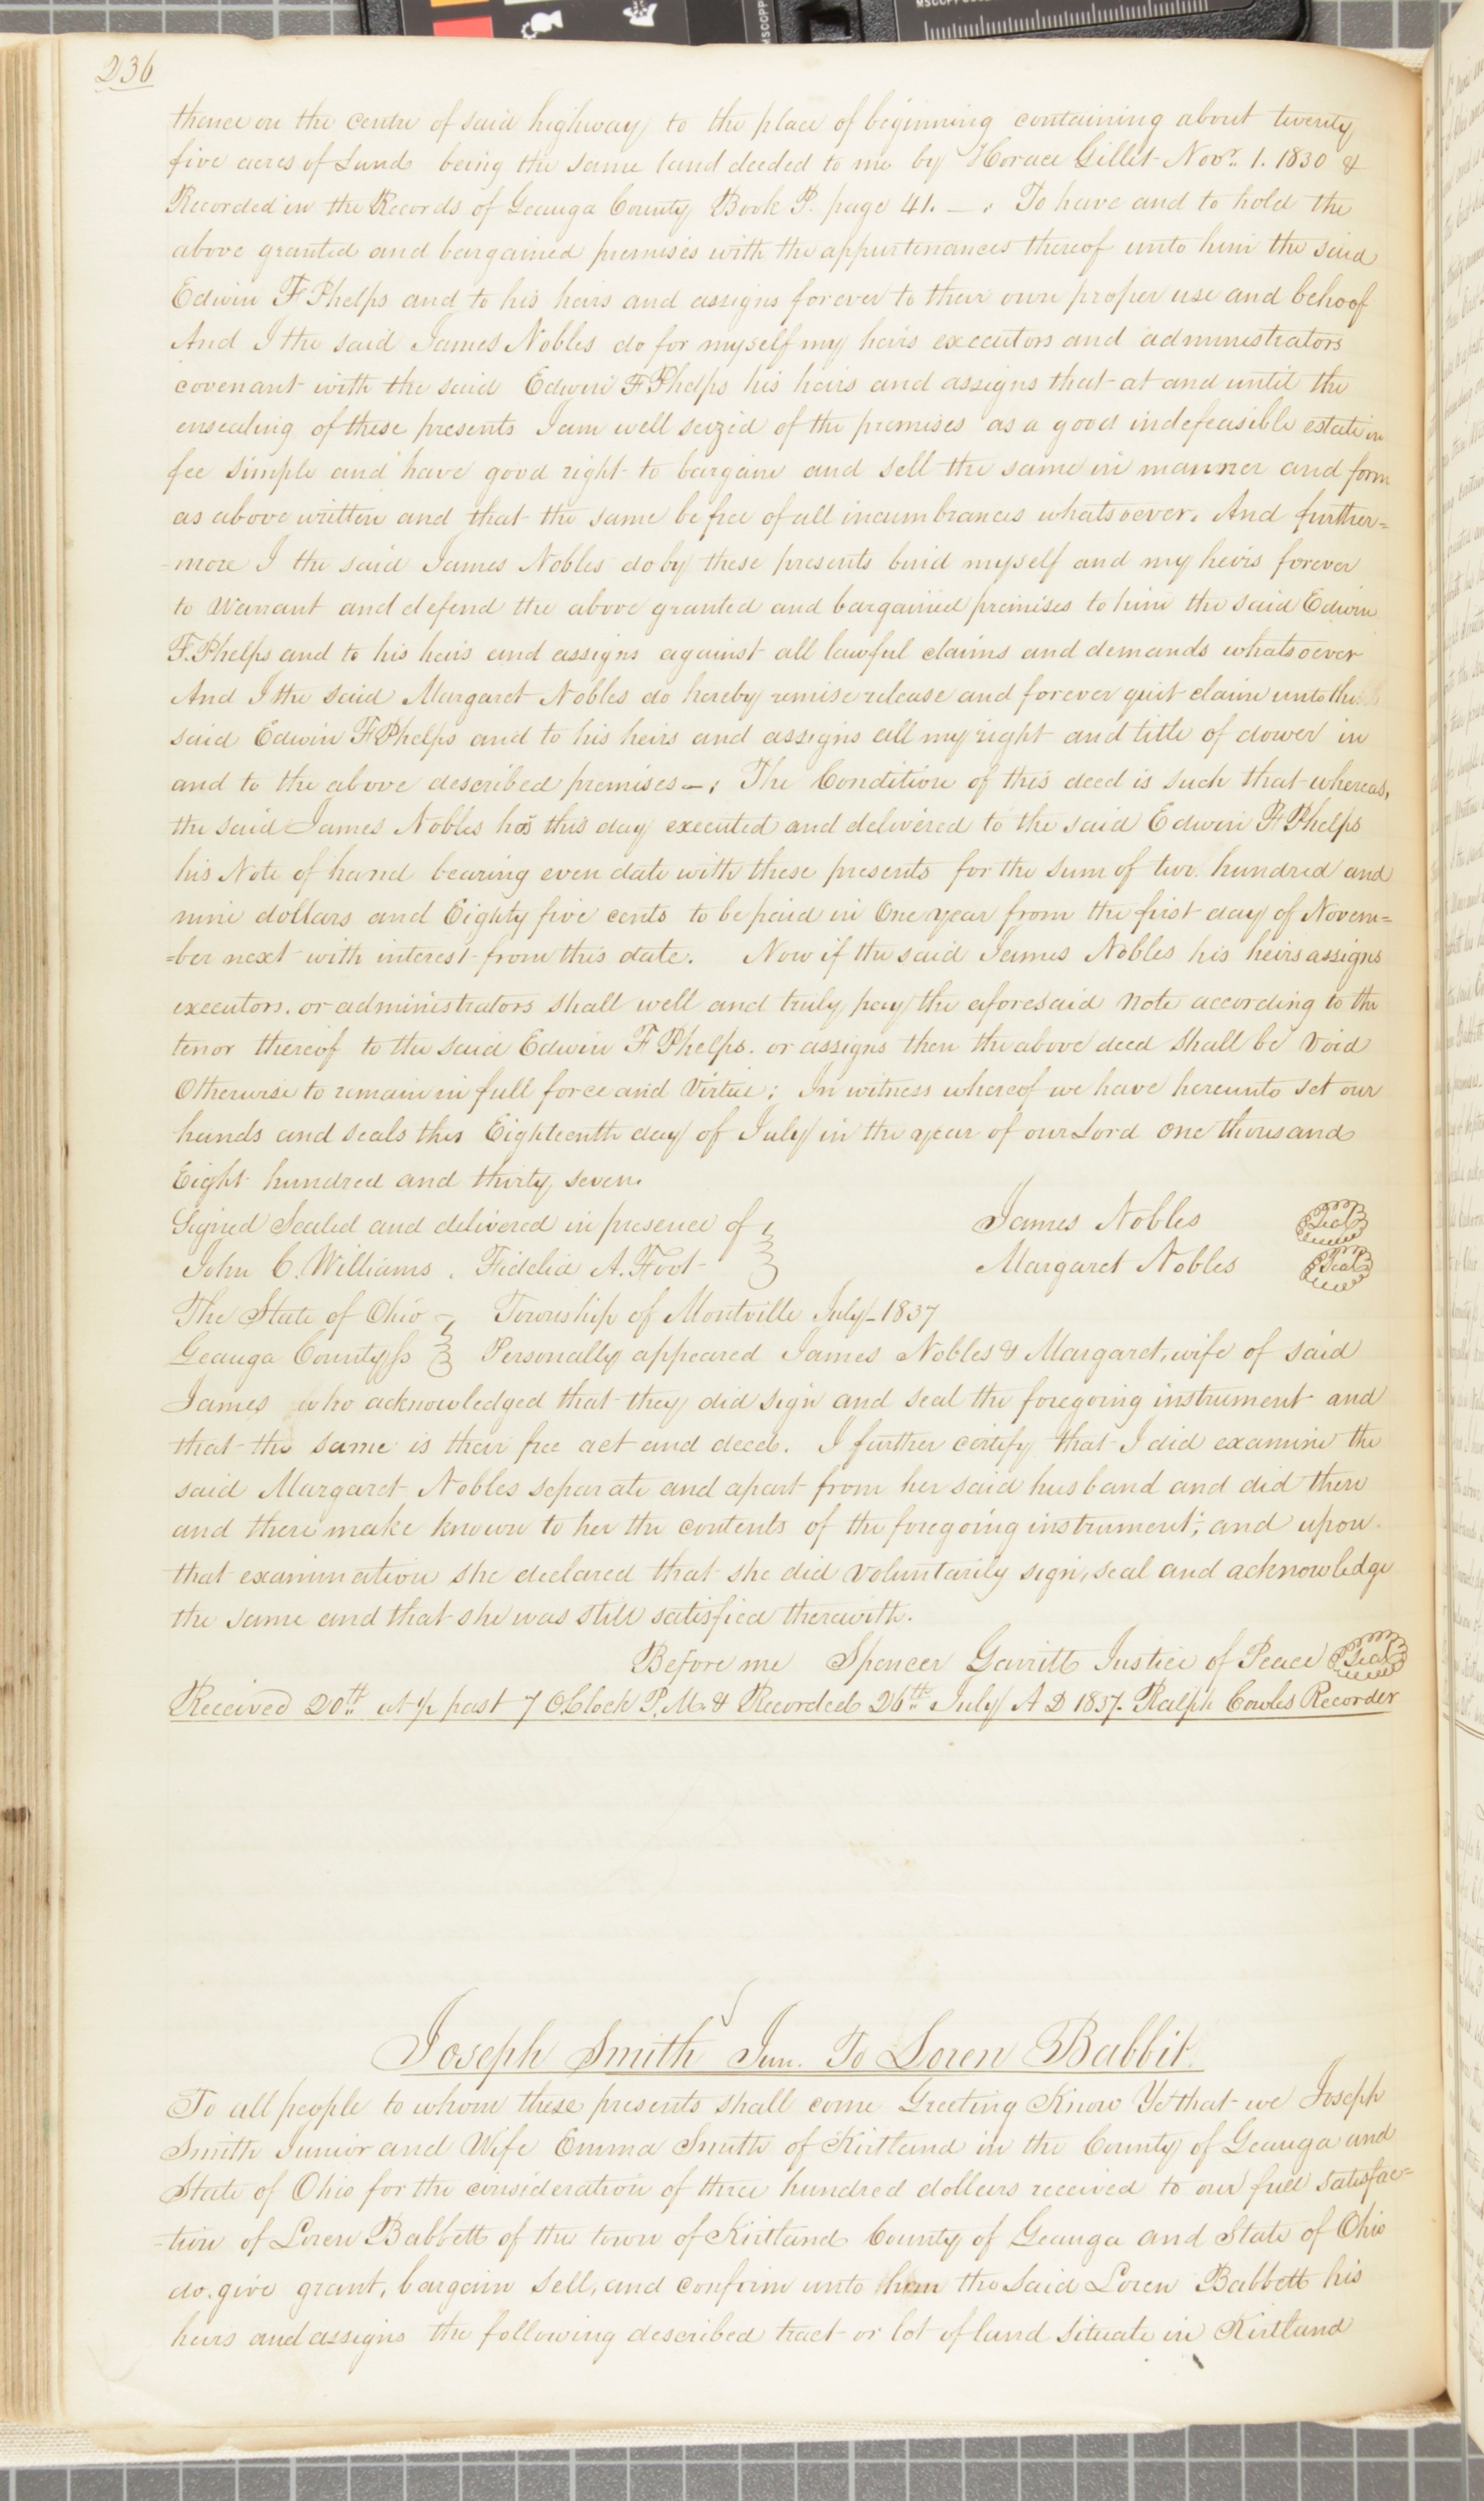 236
thence on the centre of said highway to the place of beginning containing about twenty
five acres of Land being the same land deeded to me by Horace Gillet Novr. 1. 1830 &
Recorded in the Records of Geauga County Book P. page 41. —. To have and to hold the
above granted and bargained premises with the appurtenances thereof unto him the said
Edwin F Phelps and to his heirs and assigns forever to their own proper use and behoof
And I the said James Nobles do for myself my heirs executors and administrators
covenant with the said Edwin F Phelps his heirs and assigns that at and until the
ensealing of these presents I am well seized of the premises as a good indefeasible estate in
fee simple and have good right to bargain and sell the same in manner and form
as above written and that the same be free of all incumbrances whatsoever. And further=
=more I the said James Nobles do by these presents bind myself and my heirs forever
to Warrant and defend the above granted and bargained premises to him the said Edwin
F. Phelps and to his heirs and assigns against all lawful claims and demands whatsoever
And I the said Margaret Nobles do hereby remise release and forever quit claim unto the
said Edwin F Phelps and to his heirs and assigns all my right and title of dower in
and to the above described premises —. The Condition of this deed is such that whereas,
the said James Nobles has this day executed and delivered to the said Edwin F Phelps
his Note of hand bearing even date with these presents for the sum of two hundred and
nine dollars and Eighty five cents to be paid in One year from the first day of Novem=
=ber next with interest from this date. Now if the said James Nobles his heirs assigns
executors. or administrators shall well and truly pay the aforesaid note according to the
tenor thereof to the said Edwin F Phelps. or assigns then the above deed shall be void
Otherwise to remain in full force and Virtue; In witness whereof we have hereunto set our
hands and seals this Eighteenth day of July in the year of our Lord one thousand
Eight hundred and thirty seven.
Signed Sealed and delivered in presence of } James Nobles Seal
John C. Williams. Fidelia A. Foot } Margaret Nobles Seal
The State of Ohio } Township of Montville July – 1837
Geauga County ss } Personally appeared James Nobles & Margaret, wife of said
James who acknowledged that they did sign and seal the foregoing instrument and
that the same is their free act and deed. I further certify that I did examine the
said Margaret Nobles separate and apart from her said husband and did then
and there make known to her the contents of the foregoing instrument; and upon
that examination she declared that she did voluntarily sign, seal and acknowledge
the same and that she was still satisfied therewith.
Before me Spencer Garritt Justice of Peace Seal
Received 20th at ½ past 7 OClock P.M. & Recorded 26th July A D 1837. Ralph Cowles Recorder
Joseph Smith Jun. To Loren Babbit
To all people to whom these presents shall come Greeting Know Ye that we Joseph
Smith Junior and Wife Emma Smith of Kirtland in the County of Geauga and
State of Ohio for the consideration of three hundred dollars received to our full satisfac=
=tion of Loren Babbett of the town of Kirtland County of Geauga and State of Ohio
do. give grant, bargain sell, and confirm unto him the said Loren Babbett his
heirs and assigns the following described tract or lot of land situate in Kirtland